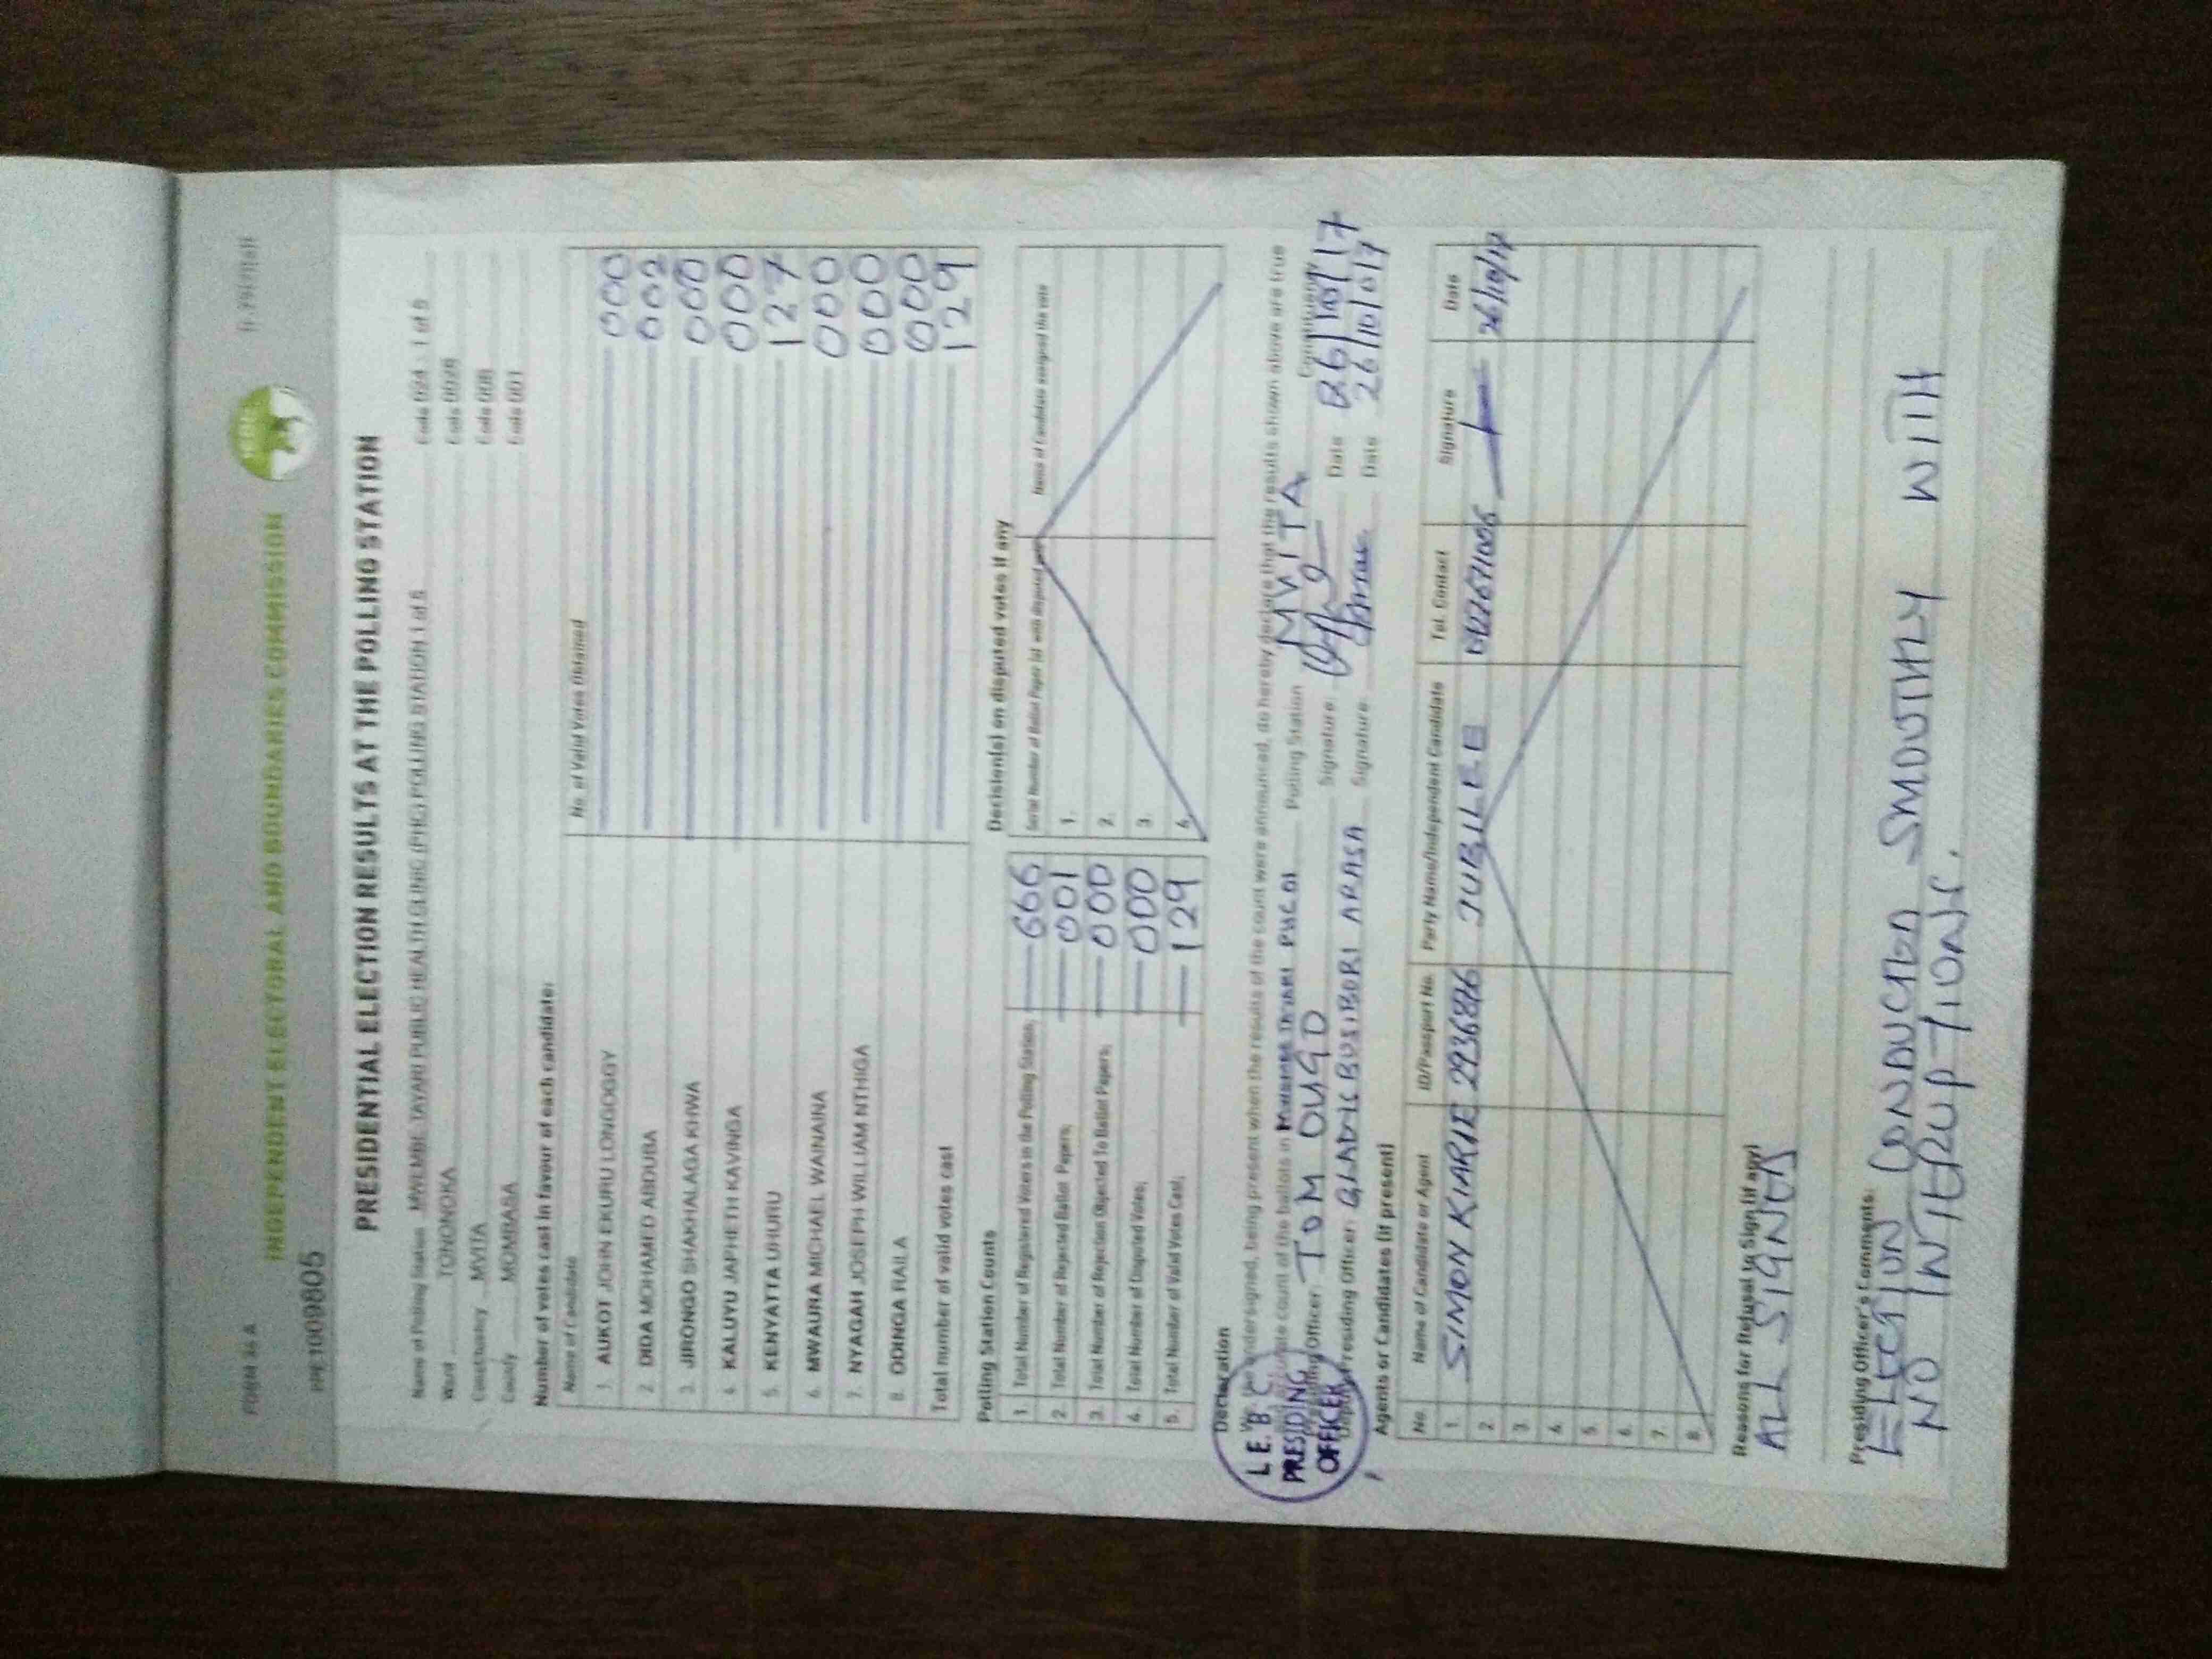 FORM 34 A
INDEPENDENT ELECTORAL AND BOUNDARIES COMMISSION
PRESIDENTIAL ELECTION RESULTS AT THE POLLING STATION
Name of Polling Station MWEMBE TAYARI PUBLIC HEALTH CLINIC (PHC) POLLING STATION 1 of 5 Code 024 1 of 5
Ward TONONOKA Code 0028
Constituency MVITA Code 006
County MOMBASA Code 001
Number of votes cast in favour of each candidate:
Name of Candidate No. of Valid Votes Obtained
1. AUKOT JOHN EKURU LONGOGGY 000
2. DIDA MOHAMED ABDUBA 002
3. JIRONGO SHAKHALAGA KHWA 000
4. KALUYU JAPHETH KAVINGA 000
5. KENYATTA UHURU 127
6. MWAURA MICHAEL WAINAINA 000
7. NYAGAH JOSEPH WILLIAM NTHIGA 000
8. ODINGA RAILA 000
Total number of valid votes cast 129
Polling Station Counts
1. Total Number of Registered Voters in the Polling Station; 666
2. Total Number of Rejected Ballot Papers; 001
3. Total Number of Rejection Objected To Ballot Papers; 000
4. Total Number of Disputed Votes; 000
5. Total Number of Valid Votes Cast; 129
Decision(s) on disputed votes if any
Serial Number of Ballot Paper (s) with disputed Name of Candidate assigned the vote
1.
2.
3.
4.
Declaration
We, the undersigned, being present when the results of the count were announced, do hereby declare that the results shown above are true
count of the ballots in Polling Station MVITA Constituency
Presiding Officer: TOM OUGO Signature: Date 26/10/17
Deputy Presiding Officer: GLADYS BOSIBORI ARASA Signature: Date 26/10/017
I.E.B.C
PRESIDING
OFFICER
Agents or Candidates (if present)
No. Name of Candidate or Agent ID/Passport No. Party Name/Independent Candidate Tel. Contact Signature Date
1. SIMON KIARIE 29368716 JUBILEE 26/10/17
2.
3.
4.
5.
6.
7.
8.
Reasons for Refusal to Sign (if any)
ALL SIGNED
Presiding Officer's Comments:
ELECTION CONDUCTED SMOOTHLY WITH
NO INTERUPTIONS.